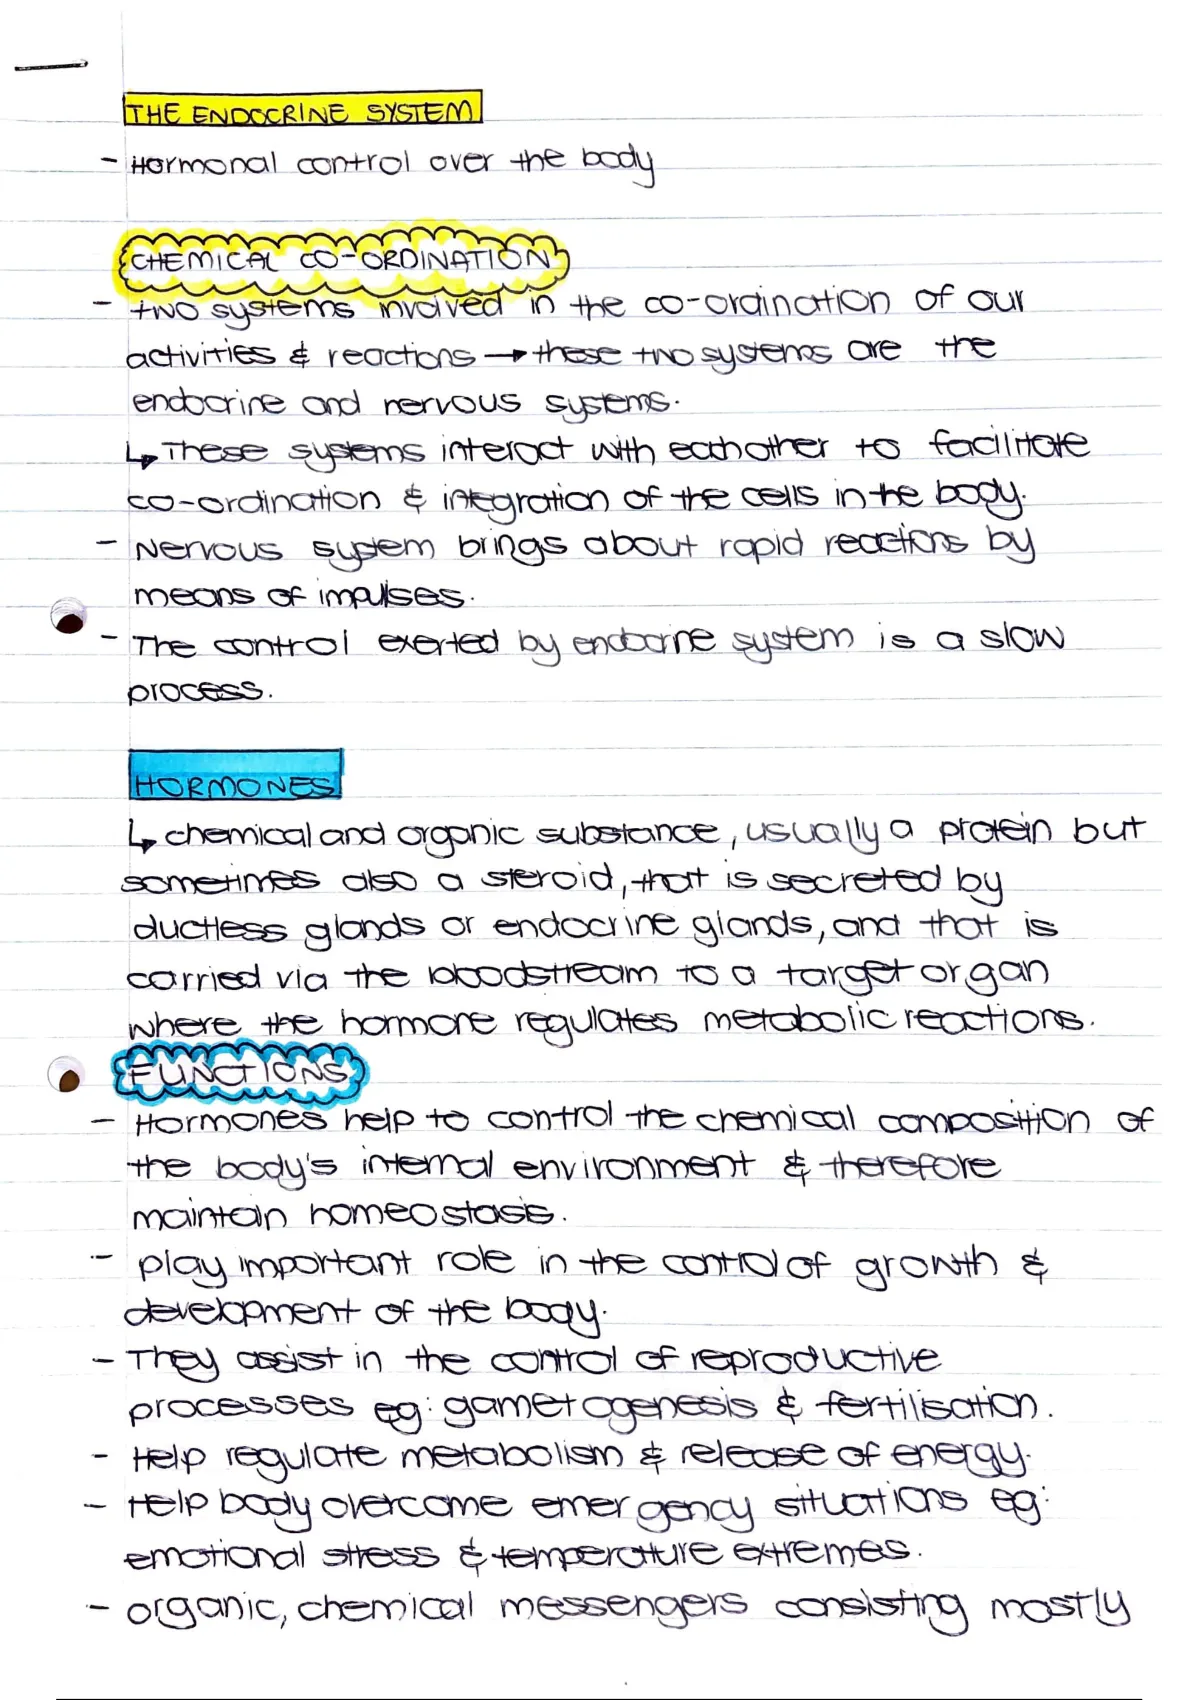 THE ENDOCRINE SYSTEM
- Hormonal control over the body
CHEMICAL CO-ORDINATION
- two systems involved in the co-ordination of our
activities & reactions → these two systems are the
endocrine and nervous systems.
↳ These systems interact with eachother to facilitate
co-ordination & integration of the cells in the body.
- Nervous system brings about rapid reactions by
means of impulses.
- The control exerted by endocrine system is a slow
process.
HORMONES
↳ chemical and organic substance, usually a protein but
sometimes also a steroid, that is secreted by
ductless glands or endocrine glands, and that is
carried via the bloodstream to a target organ
where the hormone regulates metabolic reactions.
FUNCTIONS
- Hormones help to control the chemical composition of
the body's internal environment & therefore
maintain homeostasis.
- play important role in the control of growth &
development of the body.
- They assist in the control of reproductive
processes eg: gametogenesis & fertilisation.
- Help regulate metabolism & release of energy.
- Help body overcome emergency situations eg:
emotional stress & temperature extremes.
- organic, chemical messengers consisting mostly